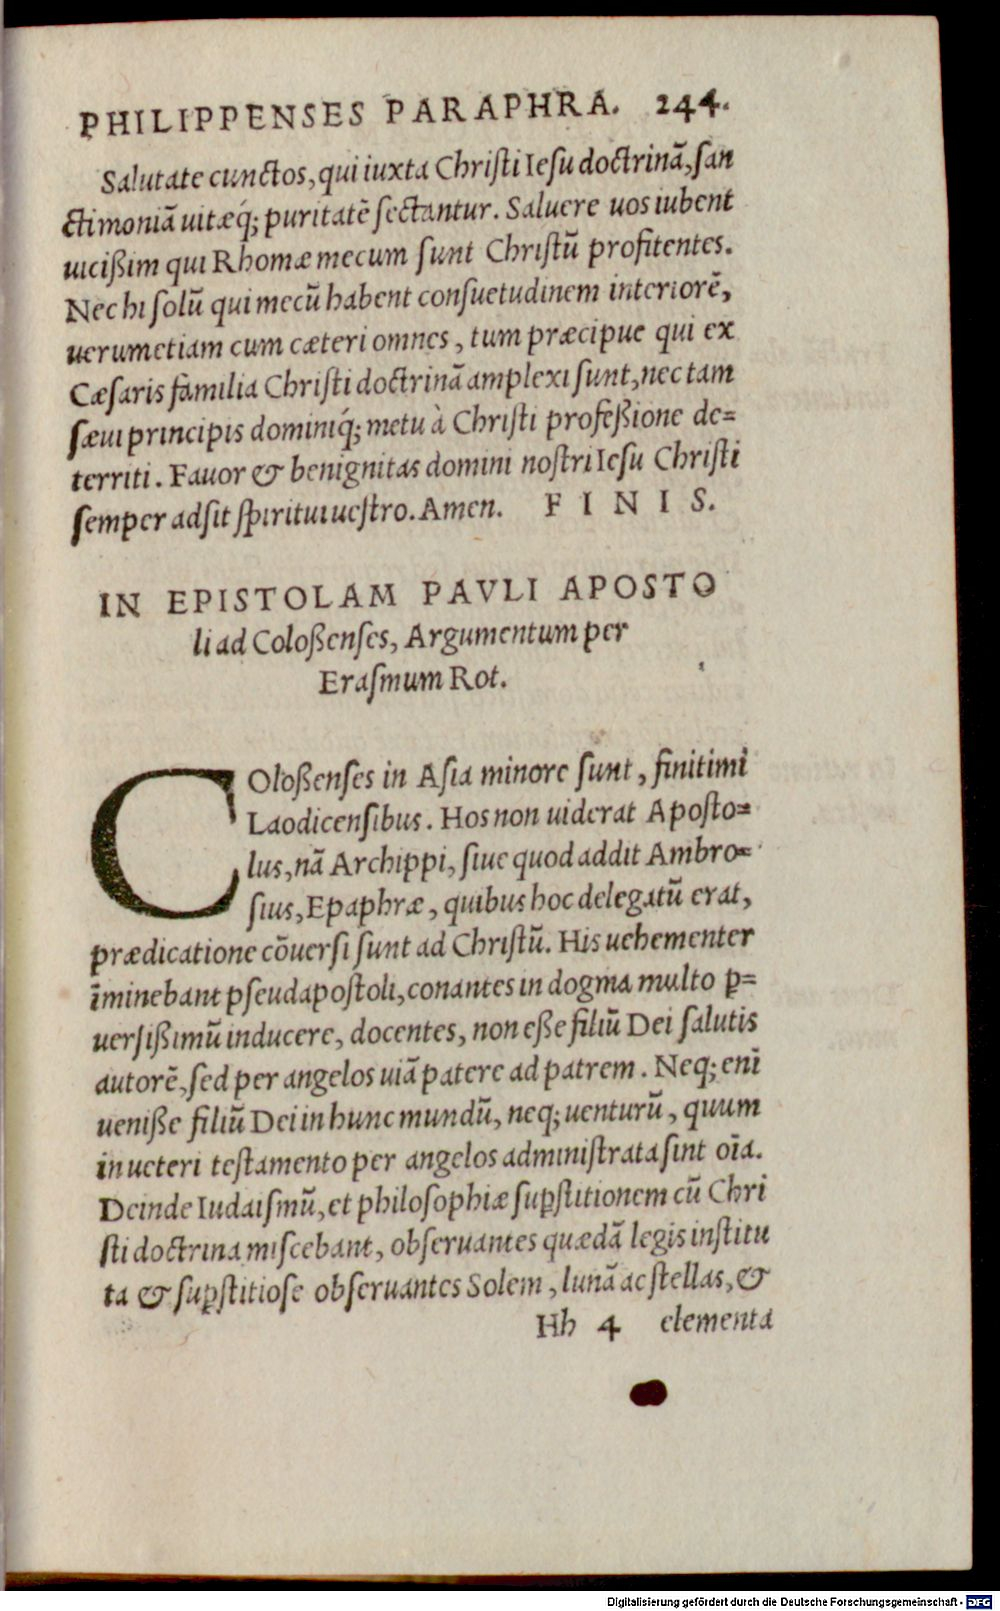 PHILIPPENSES PARAPHRA. 244.
Salutate cunctos, qui iuxta Christi Iesu doctrinā, san
ctimoniā uitæq́; puritatē sectantur. Saluere uos iubent
uicißim qui Rhomæ mecum sunt Christū profitentes.
Nec hi solū qui mecū habent consuetudinem interiorē,
uerumetiam cum cæteri omnes, tum præcipue qui ex
Cæsaris familia Christi doctrinā amplexi sunt, nec tam
sæui principis dominiq́; metu à Christi profeßione de=
territi. Fauor & benignitas domini nostri Iesu Christi
semper adsit spiritui uestro. Amen. F I N I S.
IN EPISTOLAM PAVLI APOSTO
li ad Coloßenses, Argumentum per
Erasmum Rot.
COloßenses in Asia minore sunt, finitimi
Laodicensibus. Hos non uiderat Aposto=
lus, nā Archippi, siue quod addit Ambro=
sius, Epaphræ, quibus hoc delegatū erat,
prædicatione cōuersi sunt ad Christū. His uehementer
īminebant pseudapostoli, conantes in dogma multo ꝑ=
uersißimū inducere, docentes, non eße filiū Dei salutis
autorē, sed per angelos uiā patere ad patrem. Neq; enī
ueniße filiū Dei in hunc mundū, neq; uenturū, quum
in ueteri testamento per angelos administrata sint oīa.
Deinde Iudaismū, et philosophiæ suꝑstitionem cū Chri
sti doctrina miscebant, obseruantes quædā legis institu
ta & suꝑstitiose obseruantes Solem, lunā ac stellas, &
Hh 4 elementa
Digitalisierung gefördert durch die Deutsche Forschungsgemeinschaft - DFG